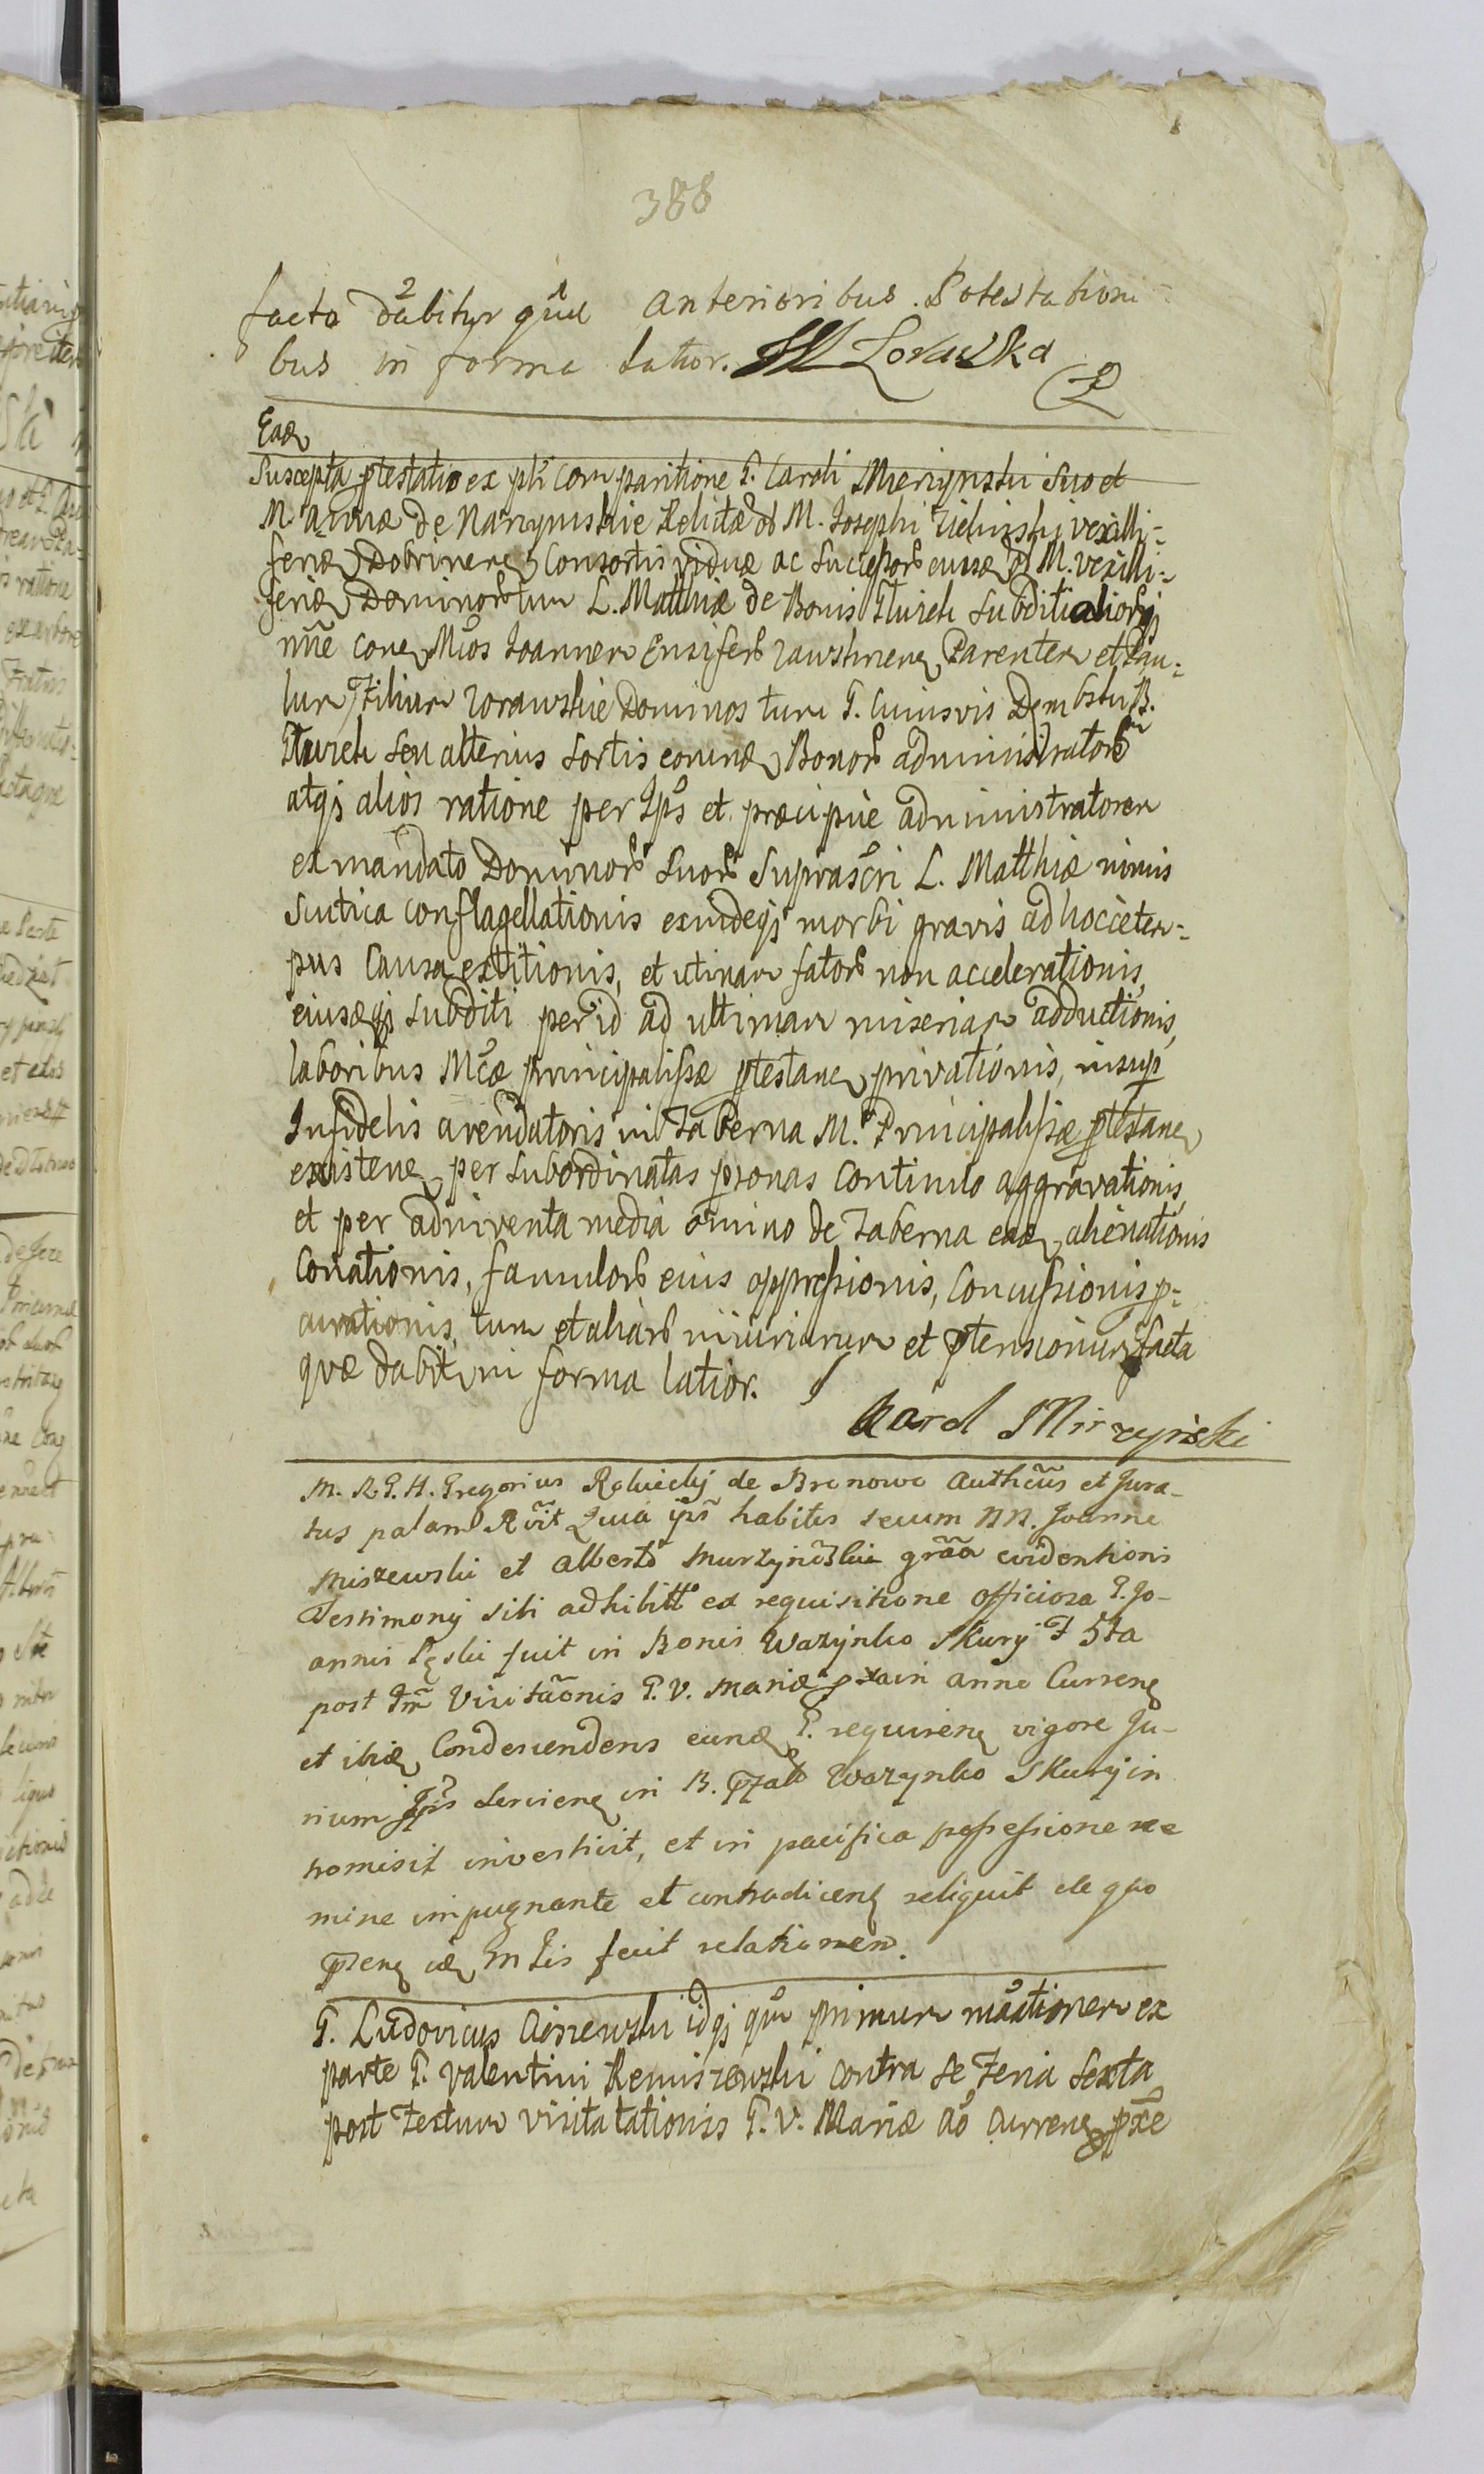 388
facta dabitur quæ anterioribus Potestationi
bus in forma latior. M Zorawska
Ead
Suscepta ptestatio ex pti Comparitione G. Caroli Mierzynski Suo et
M. Annæ de Narzymskie Relictæ ol M. Josephi Zielinski vexilli-
feriæ Dobrinen Consortis viduæ ac Successorb eiusd ol M. vexilli-
feriæ Dominorb tum L. Matthiæ de Bonis subditi aliorq
nne con Mcos Joannem Ensiferb Rawshinen Parentem et Pau-
lum Filium Zorawskie Dominos tum G. Cuiusvis Dembski B.
seu alterius sortis eorund Bonorb administratorb
atq alios ratione per Ips et præcipue administratorem
ex mandato Dominorb suorb suprascri L. Matthiæ nimis
Scutica conflagellationis exindeq morbi gravis adhocce tem-
pus Causa extitionis, et utinam fatorb non accelerationis,
eiusdq subditi per id ad ultimam miseriam adductionis,
laboribus Mcæ principalissæ ptestan privationis, insup
Infidelis arendatoris in Taberna M. Principalissæ ptestan
existen per subordinatas psonas Continuo aggravationis,
et per adinventa media omino de Taberna ead alienationis
Conationis, famulorb eius oppressionis, Concussionis p-
curationis, tum et aliarb iniuriarum et ptensionum facta
quæ dabit in forma latior.
Karol Mirzyński
M. R. G. H. Gregorius de Bronowo Authcus et Jura-
tus palam Rvit Quia ips habitis secum NN. Joanne
Miszewski et Alberto Murzynoski graa evidentioris
Testimony sibi adhibitt ex requisitione officiosa G. Jo-
annis Pęski fuit in Bonis Wazynko Skury F 5ta
post Visitaonis G. V. Mariæ pxain anno Curren
et ibid Condescendens eund G. requiren vigore
in B. Wazynko Skury in
tromisit investivit, et in pacifica possessione ne
mine impugnante et contradicen reliquit de quo
fecit relationem.
G. Ludovicus idq primum ex
parte G. Valentini Remiszewski contra se Feria Sexta
post Festum Visitatationis G. V. Mariæ Ao Curren pxe